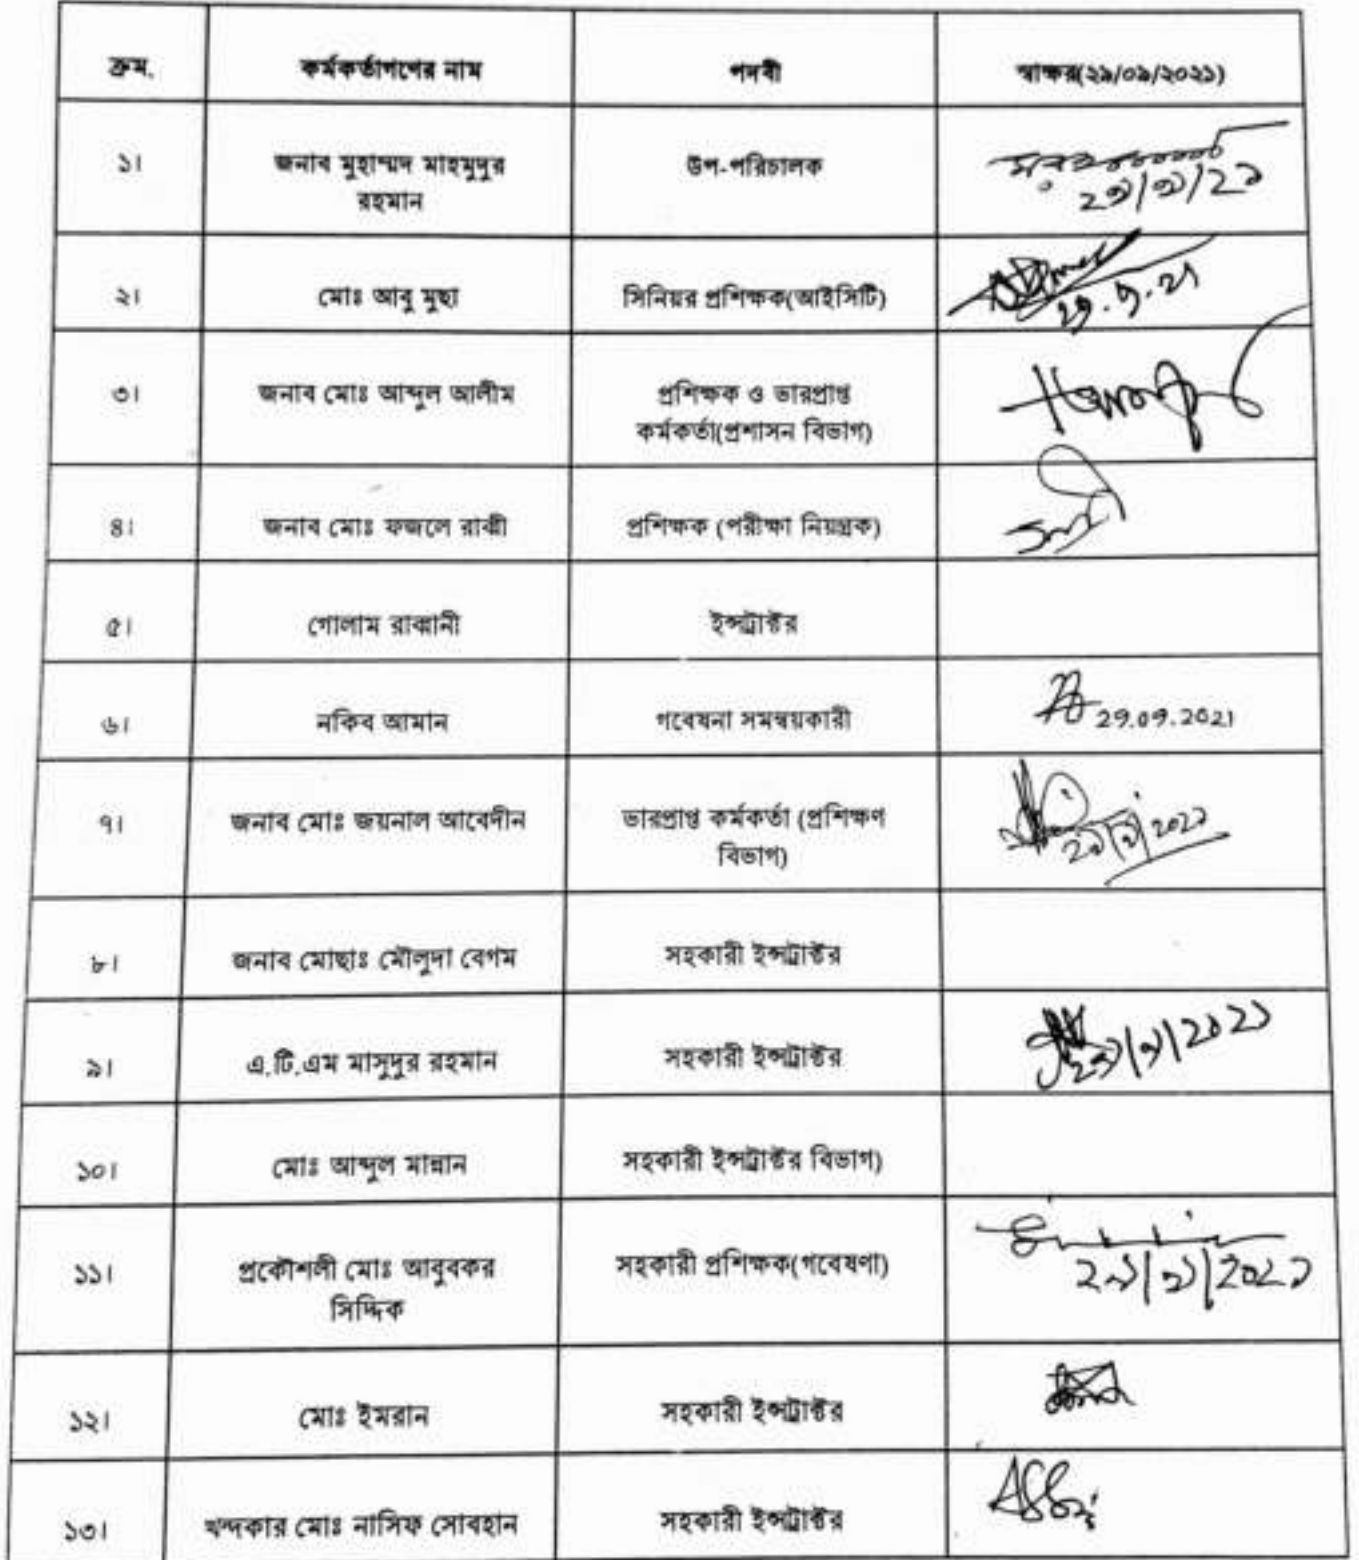 ক্রম. কর্মকর্তাগণের নাম পদবী স্বাক্ষর(২৯/০৯/২০২১)
১। জনাব মুহাম্মদ মাহমুদুর উপ-পরিচালক
রহমান
২৯/৯/২১
২। মোঃ আবু মুছা সিনিয়র প্রশিক্ষক(আইসিটি)
29.9.21
৩। জনাব মোঃ আব্দুল আলীম প্রশিক্ষক ও ভারপ্রাপ্ত
কর্মকর্তা(প্রশাসন বিভাগ)
৪। জনাব মোঃ ফজলে রাব্বী প্রশিক্ষক (পরীক্ষা নিয়ন্ত্রক)
৫। গোলাম রাব্বানী ইন্সট্রাক্টর
৬। নকিব আমান গবেষনা সমন্বয়কারী 29.09.2021
৭। জনাব মোঃ জয়নাল আবেদীন ভারপ্রাপ্ত কর্মকর্তা (প্রশিক্ষণ
বিভাগ)
২৯/৯/২০২১
৮। জনাব মোছাঃ মৌলুদা বেগম সহকারী ইন্সট্রাক্টর
৯। এ.টি.এম মাসুদুর রহমান সহকারী ইন্সট্রাক্টর ২৯/৯/২০২১
১০। মোঃ আব্দুল মান্নান সহকারী ইন্সট্রাক্টর বিভাগ)
১১। প্রকৌশলী মোঃ আবুবকর সহকারী প্রশিক্ষক(গবেষণা) ২৯/৯/২০২১
সিদ্দিক
১২। মোঃ ইমরান সহকারী ইন্সট্রাক্টর
১৩। খন্দকার মোঃ নাসিফ সোবহান সহকারী ইন্সট্রাক্টর